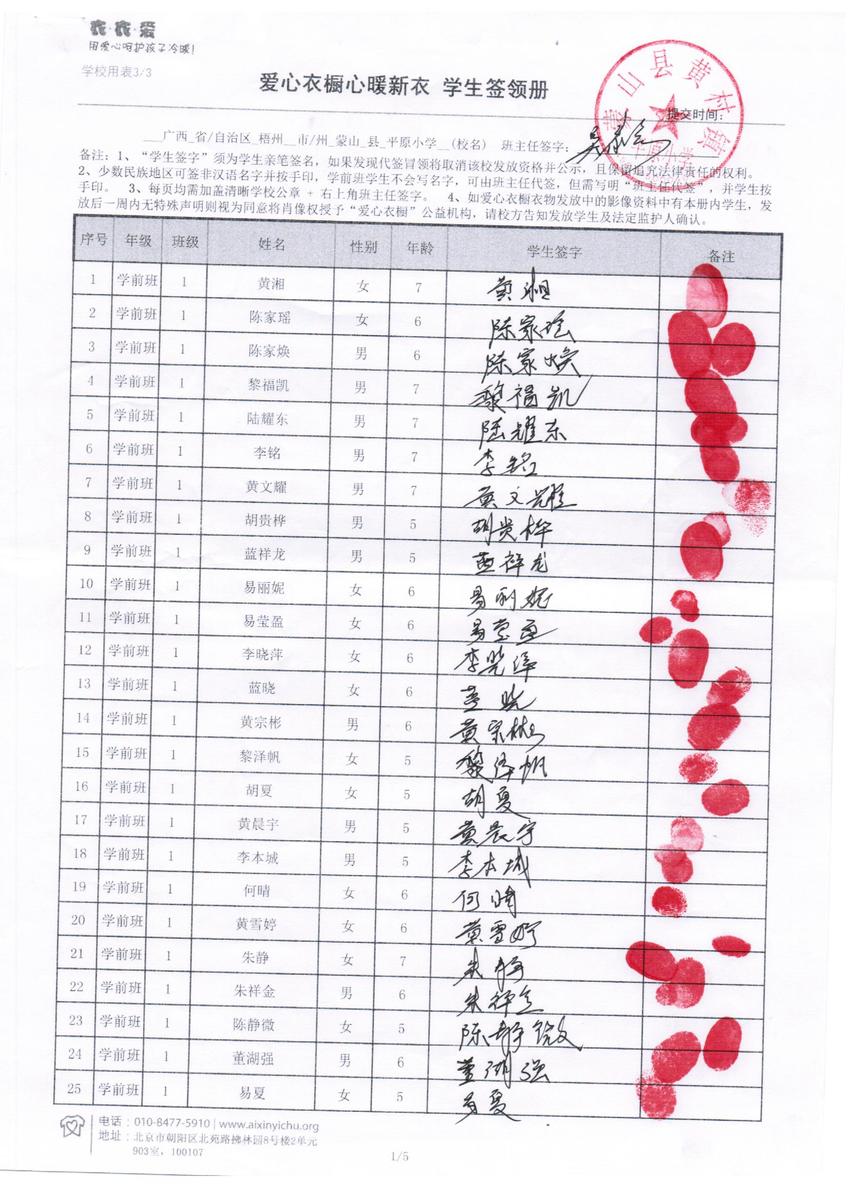 衣·衣·爱
用爱心呵护孩子冷暖!
学校用表3/3
爱心衣橱心暖新衣 学生签领册
提交时间:
___广西_省/自治区_梧州__市/州_蒙山_县_平原小学__(校名) 班主任签字:
备注: 1、“学生签字”须为学生亲笔签名,如果发现代签冒领将取消该校发放资格并公示,且保留追究法律责任的权利。
2、少数民族地区可签非汉语名字并按手印,学前班学生不会写名字,可由班主任代签,但需写明“班主任代签”,并学生按
手印。 3、每页均需加盖清晰学校公章 + 右上角班主任签字。 4、如爱心衣橱衣物发放中的影像资料中有本册内学生,发
放后一周内无特殊声明则视为同意将肖像权授予“爱心衣橱”公益机构,请校方告知发放学生及法定监护人确认。
蒙山县黄村镇
平原小学
序号 年级 班级 姓名 性别 年龄 学生签字 备注
1 学前班 1 黄湘 女 7 黄湘
2 学前班 1 陈家瑶 女 6 陈家瑶
3 学前班 1 陈家焕 男 6 陈家焕
4 学前班 1 黎福凯 男 7 黎福凯
5 学前班 1 陆耀东 男 7 陆耀东
6 学前班 1 李铭 男 7 李铭
7 学前班 1 黄文耀 男 7 黄文耀
8 学前班 1 胡贵桦 男 5 胡贵桦
9 学前班 1 蓝祥龙 男 5 蓝祥龙
10 学前班 1 易丽妮 女 6 易丽妮
11 学前班 1 易莹盈 女 6 易莹盈
12 学前班 1 李晓萍 女 6 李晓萍
13 学前班 1 蓝晓 女 6 蓝晓
14 学前班 1 黄宗彬 男 6 黄宗彬
15 学前班 1 黎泽帆 女 5 黎泽帆
16 学前班 1 胡夏 女 5 胡夏
17 学前班 1 黄晨宇 男 5 黄晨宇
18 学前班 1 李本城 男 5 李本城
19 学前班 1 何晴 女 6 何晴
20 学前班 1 黄雪婷 女 6 黄雪婷
21 学前班 1 朱静 女 7 朱静
22 学前班 1 朱祥金 男 6 朱祥金
23 学前班 1 陈静微 女 5 陈静微
24 学前班 1 董湖强 男 6 董湖强
25 学前班 1 易夏 女 5 易夏
电话:010-8477-5910 | www.aixinyichu.org
地址:北京市朝阳区北苑路拂林园8号楼2单元
903室,100107
1/5